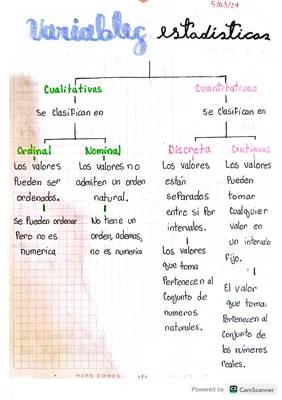 5/03/24
Variables estadisticas
Cualitativas
Se clasifican en
Ordinal
Los valores
Pueden ser
ordenados.
Se Pueden ordenar
Pero no es
numerica
Nominal
Los valores no
admiten un orden
natural.
No tiene un
orden, ademas,
no es numerica
Cuantitativas
Se clasifican en
Discreta
Los valores
están
separados
entre si Por
intervalos.
Los valores
que toma
Pertenecen al
Conjunto de
numeros
naturales.
Continuas
Los valores
Pueden
tomar
Cualquier
valor en
un intervalo
fijo.
El valor
que toma
Pertenecen al
Conjunto de
los números
reales.
HERE COMES
Powered by CS CamScanner